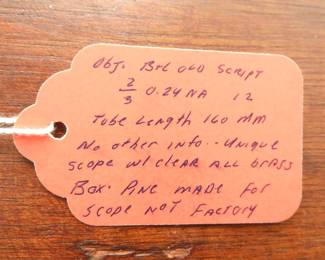 Obj. B+L OLD SCRIPT
2/3 0.24 NA 12
Tube Length 160 mm
No other info.. Unique
scope w/ clear all brass
Box. Pine made for
scope not Factory